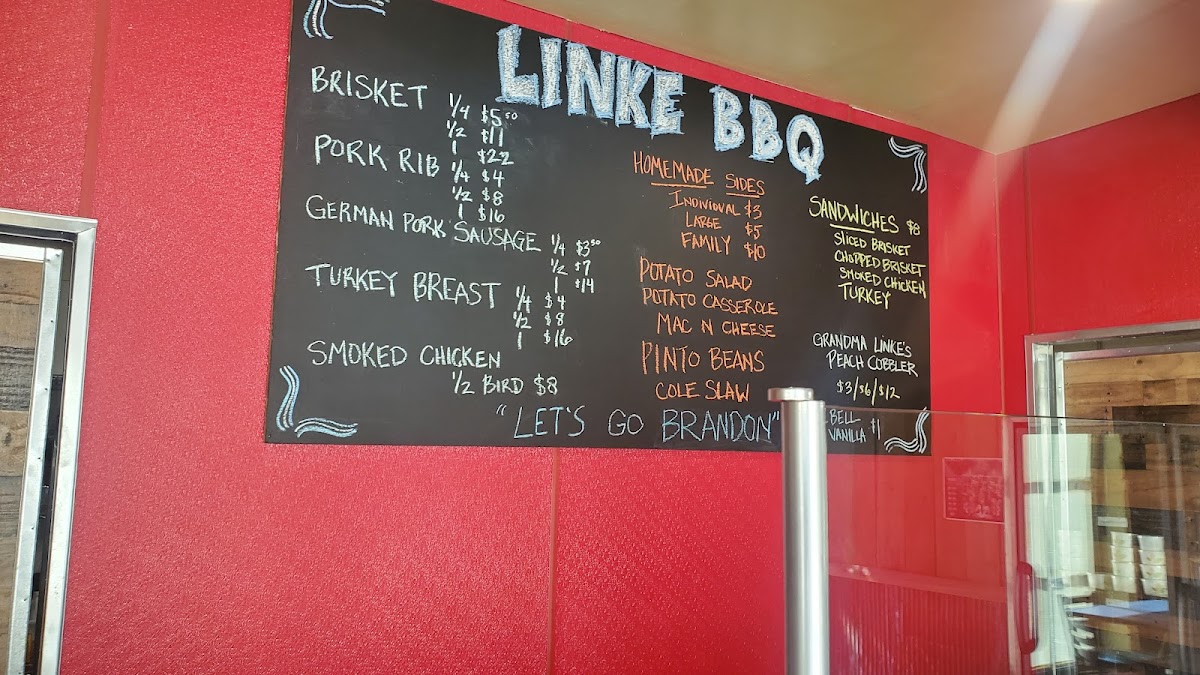 LINKE BBQ
BRISKET
1/4 $5.50
1/2 $11
1 $22
PORK RIB
1/4 $4
1/2 $8
1 $16
GERMAN PORK SAUSAGE
1/4 $3.50
1/2 $7
1 $14
TURKEY BREAST
1/4 $4
1/2 $8
1 $16
SMOKED CHICKEN
1/2 BIRD $8
HOMEMADE SIDES
INDIVIDUAL $3
LARGE $5
FAMILY $10
POTATO SALAD
POTATO CASSEROLE
MAC N CHEESE
PINTO BEANS
COLE SLAW
SANDWICHES $8
SLICED BRISKET
CHOPPED BRISKET
SMOKED CHICKEN
TURKEY
GRANDMA LINKE'S
PEACH COBBLER
$3/$6/$12
BELL
VANILLA $1
"LET'S GO BRANDON"